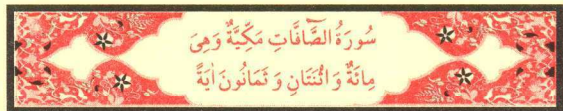 سُورَةُ الصَّافَّاتِ مَكِّيَّةٌ وَهِىَ
مِائَةٌ وَ اثْنَتَانِ وَ ثَمَانُونَ اٰيَةً